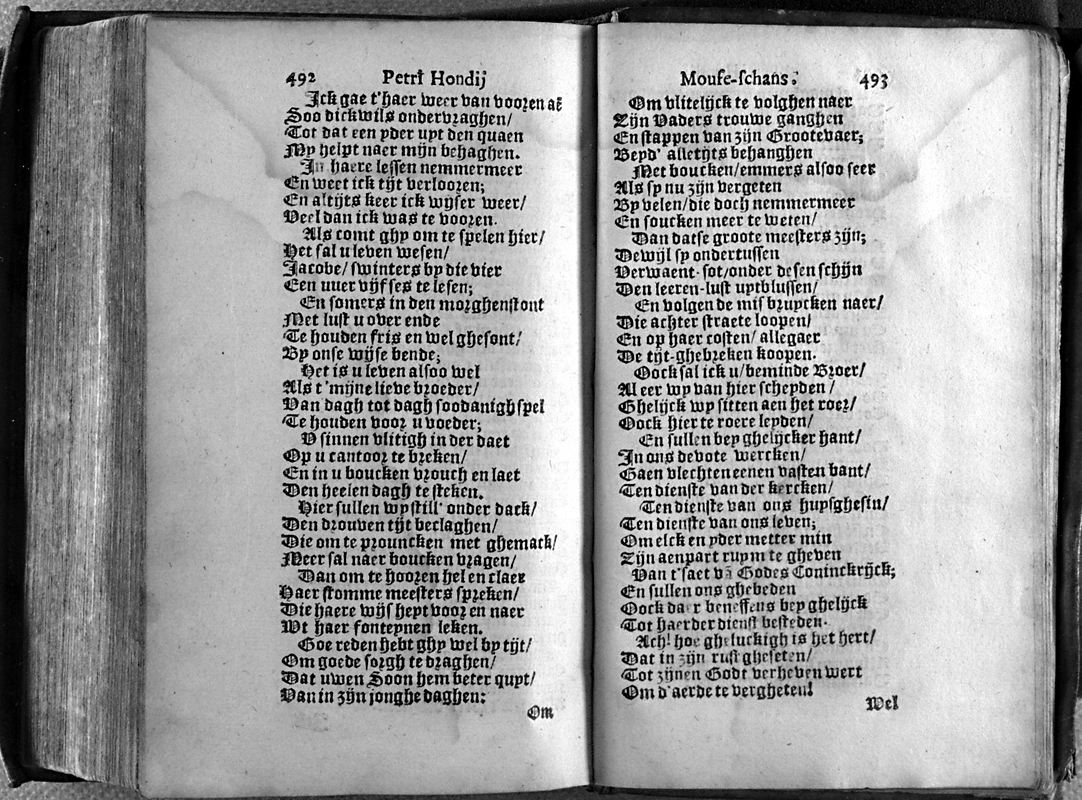 492 Petri Hondij
Ick gae t'haer weer van vooren af
Soo dickwils ondervraghen/
Tot dat een yder uyt den quaen
My helpt naer mijn behaghen.
In haere lessen nemmermeer
En weet ick tijt verlooren;
En altijts keer ick wyser weer/
Veel dan ick was te vooren.
Als comt ghy om te spelen hier/
Het sal u leven wesen/
Jacobe/ swinters by die vier
Een uuer vijf ses te lesen;
En somers in den morghenstont
Met lust u over ende
Te houden fris en wel ghesont/
By onse wijse bende;
Het is u leven alsoo wel
Als t'mijne lieve broeder/
Van dagh tot dagh soodanigh spel
Te houden voor u voeder;
V sinnen vlitigh in der daet
Op u cantoor te breken/
En in u boucken vrouch en laet
Den heelen dagh te steken.
Hier sullen wy still' onder dack/
Den drouven tijt beclaghen/
Die om te prouncken met ghemack/
Meer sal naer boucken vragen/
Dan om te hooren hel en claer
Haer stomme meesters spreken/
Die haere wijsheyt voor en naer
Wt haer fonteynen leken.
Goe reden hebt ghy wel by tijt/
Om goede sorgh te draghen/
Dat uwen Soon hem beter quyt/
Van in zijn jonghe daghen:
Om
Mouse-schans. 493
Om vlitelijck te volghen naer
Zijn Vaders trouwe ganghen
En stappen van zijn Grootevaer;
Beyd' alletijts behanghen
Met boucken/emmers alsoo seer
Als sy nu zijn vergeten
By velen/die doch nemmermeer
En soucken meer te weten/
Dan datse groote meesters zijn;
Dewijl sy ondertussen
Verwaent-sot/onder desen schijn
Den leeren-lust uytblussen/
En volgen de misbruycken naer/
Die achter straete loopen/
En op haer costen/ allegaer
De tijt-ghebreken koopen.
Oock sal ick u/beminde Broer/
Al eer wy van hier scheyden/
Ghelijck wy sitten aen het roer/
Oock hier te roere leyden/
En sullen bey ghelijcker hant/
In ons devote wercken/
Gaen vlechten eenen vasten bant/
Ten dienste van der kercken/
Ten dienste van ons huysghesin/
Ten dienste van ons leven;
Om elck en yder metter min
Zijn aenpart ruym te gheven
Van t'saet vā Godes Coninckrijck;
En sullen ons ghebeden
Oock daer beneffens bey ghelijck
Tot haerder dienst besteden.
Ach! hoe gheluckigh is het hert/
Dat in zijn rust gheseten/
Tot zijnen Godt verheven wert
Om d'aerde te vergheten!
Wel